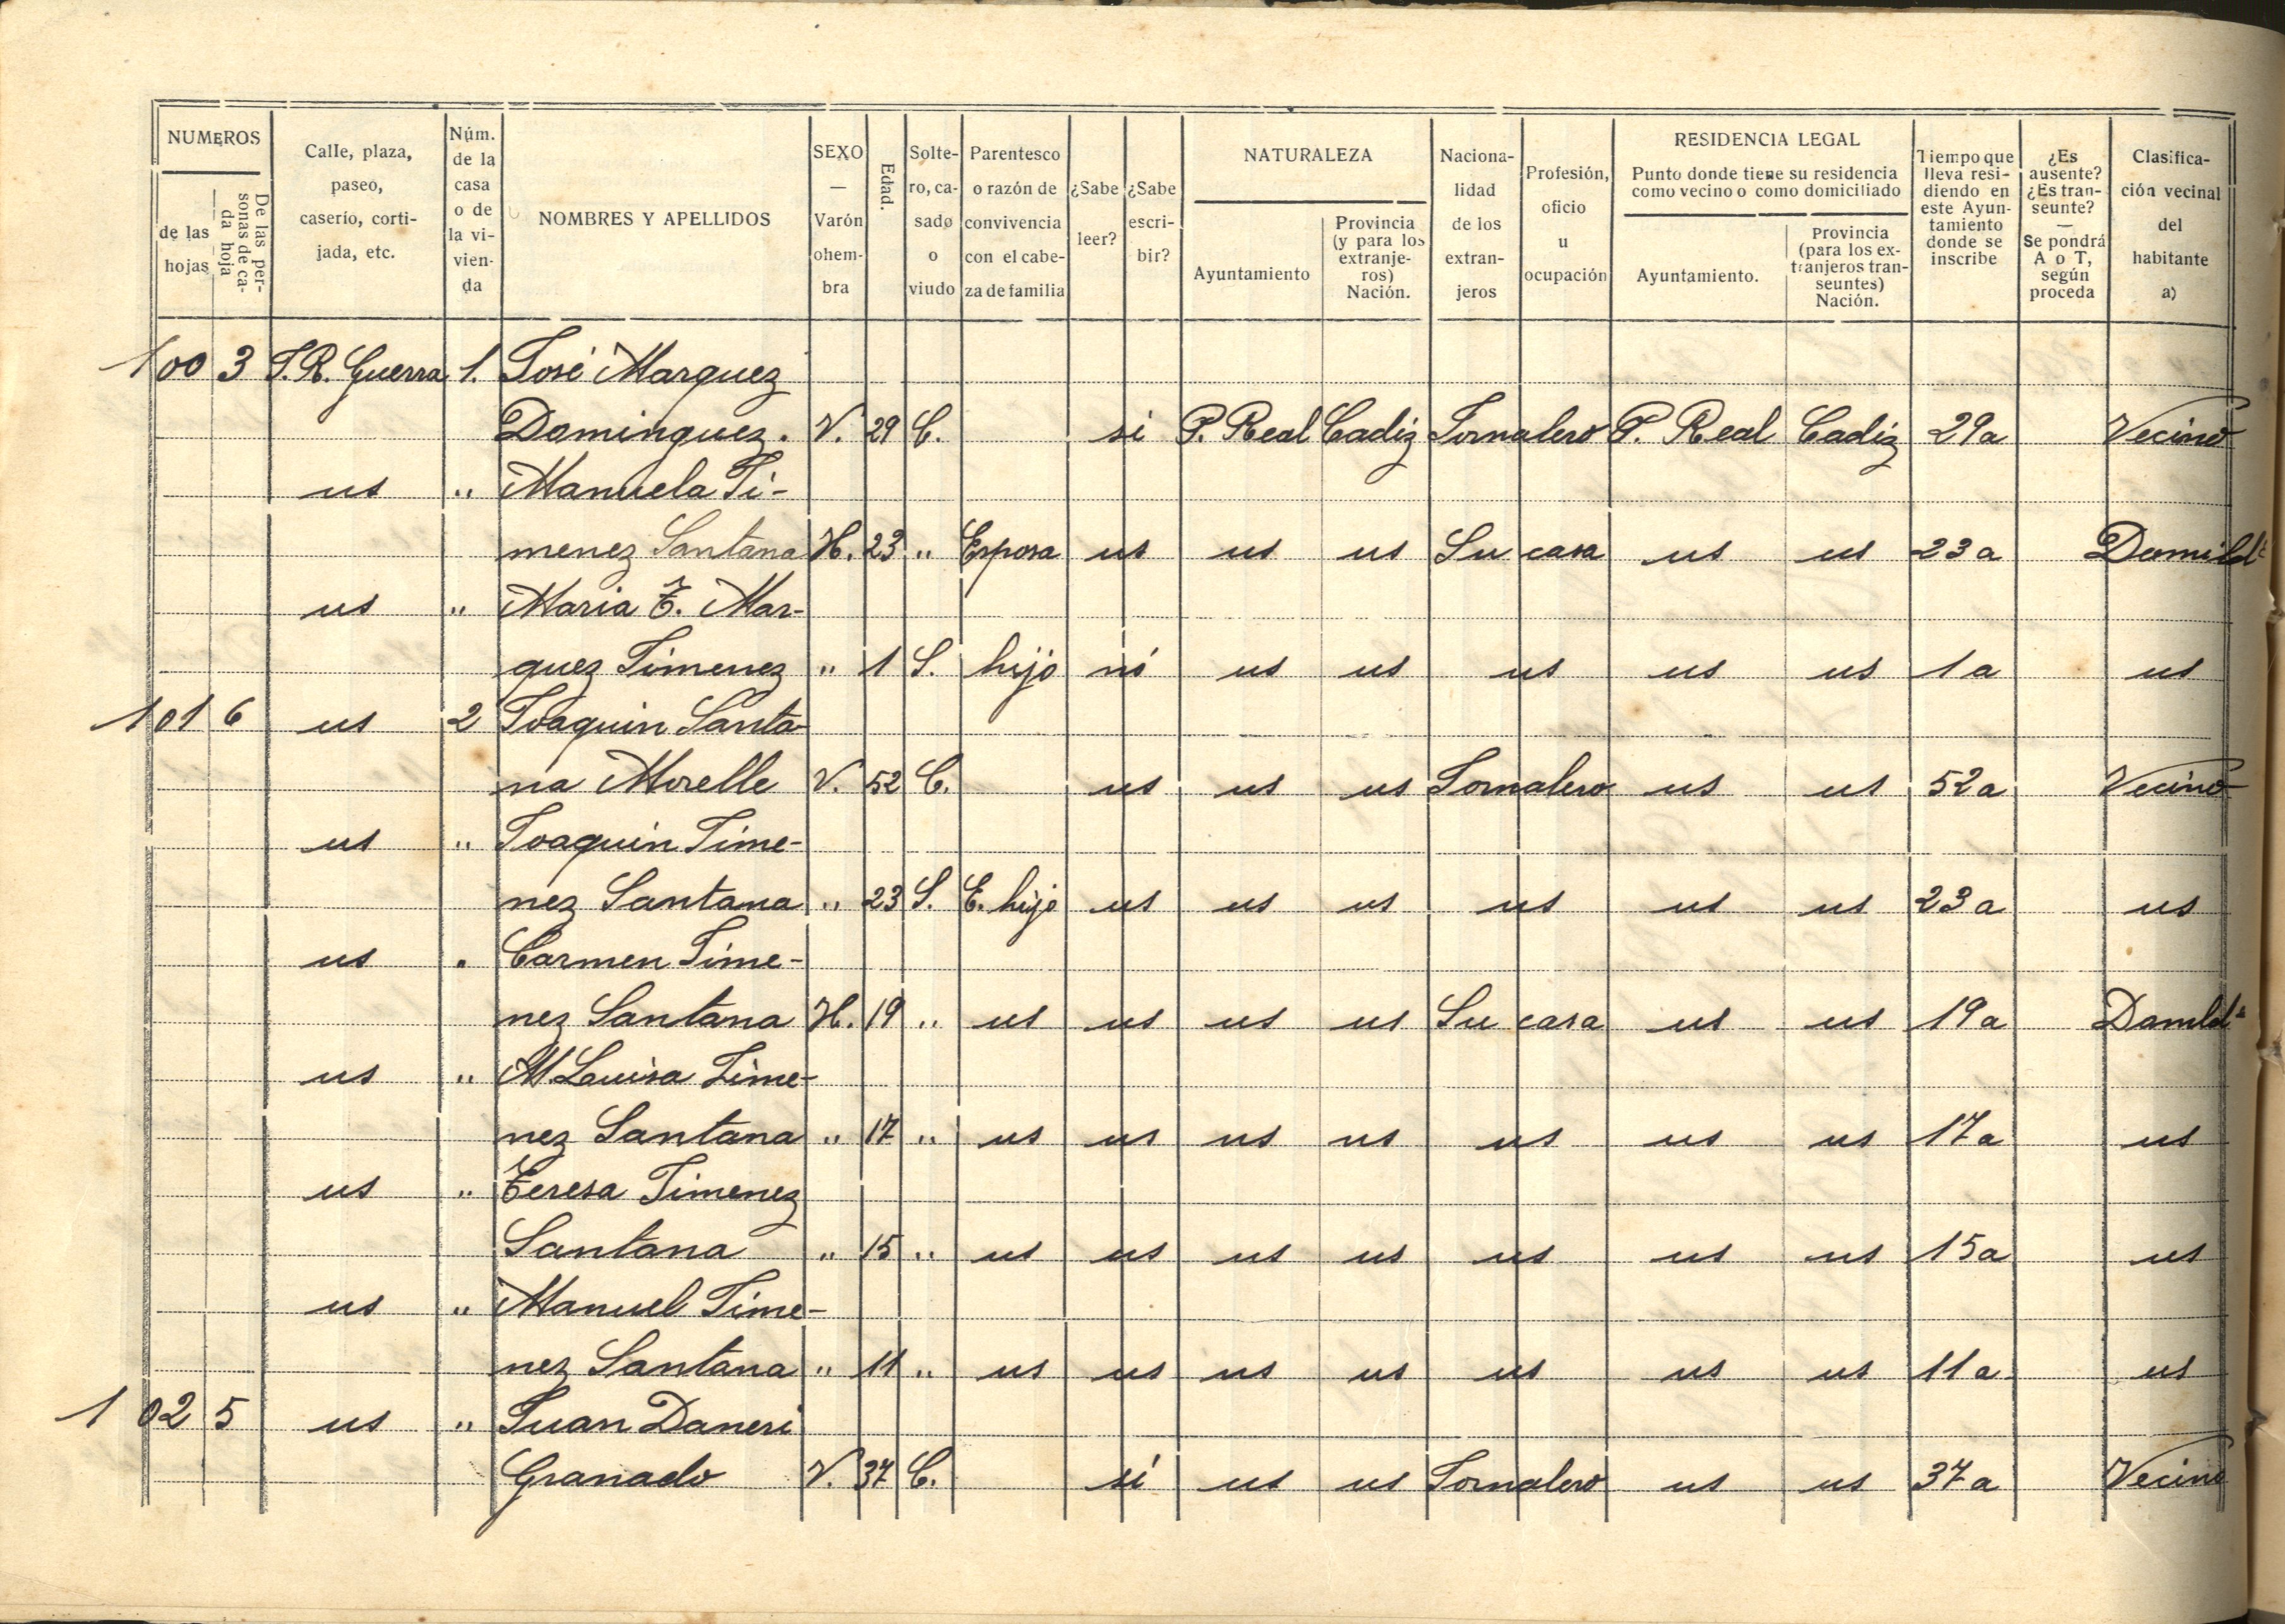 NUMEROS
de las hojas
De las personas de cada hoja
Calle, plaza, paseo, caserío, cortijada, etc.
Núm. de la casa o de la vivienda
NOMBRES Y APELLIDOS
SEXO — Varón ohembra
Edad.
Soltero, casado o viudo
Parentesco o razón de convivencia con el cabeza de familia
¿Sabe leer?
¿Sabe escribir?
NATURALEZA
Ayuntamiento
Provincia (y para los extranjeros) Nación.
Nacionalidad de los extranjeros
Profesión, oficio u ocupación
RESIDENCIA LEGAL
Punto donde tiene su residencia como vecino o como domiciliado
Ayuntamiento.
Provincia (para los extranjeros transeuntes) Nación.
Tiempo que lleva residiendo en este Ayuntamiento donde se inscribe
¿Es ausente? ¿Es transeunte? — Se pondrá A o T, según proceda
Clasificación vecinal del habitante a)
100 3 T.R. Guerra 1. José Marquez
Dominguez. V. 29 C. si P. Real Cadiz Jornalero P. Real Cadiz 29a Vecino
us " Manuela Ji-
menez Santana H. 23 " Esposa us us us Su casa us us 23a Domild.ª
us " Maria T. Mar-
quez Jimenez " 1 S. hijo nó us us us us us 1a us
101 6 us 2 Joaquin Santa-
na Morelle V. 52 C. us us us Jornalero us us 52a Vecino
us " Joaquin Jime-
nez Santana " 23 S. E. hijo us us us us us us 23a us
us " Carmen Jime-
nez Santana H. 19 " us us us us Su casa us us 19a Domld.ª
us " M Luisa Jime-
nez Santana " 17 " us us us us us us us 17a us
us " Teresa Jimenez
Santana " 15 " us us us us us us us 15a us
us " Manuel Jime-
nez Santana " 11 " us us us us us us us 11a us
102 5 us " Juan Daneri
Granado V. 37 C. si us us Jornalero us us 37a Vecino